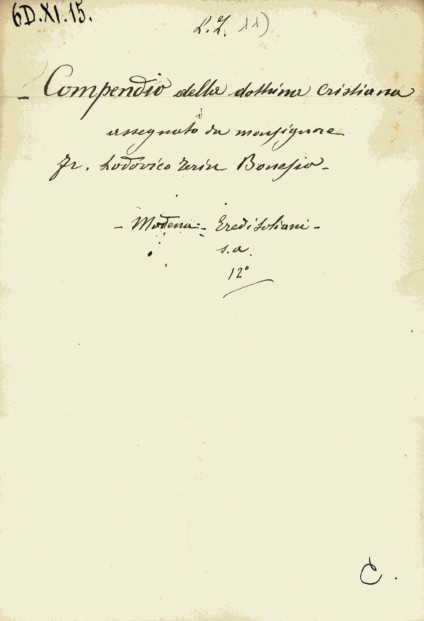 6D.XI.15.
L.Z. 11)
- Compendio della dottrina cristiana
assegnato da monsignore
Fr. Lodovico Bonesio -
- Modena - Eredi Soliani -
s.a.
12°
C.